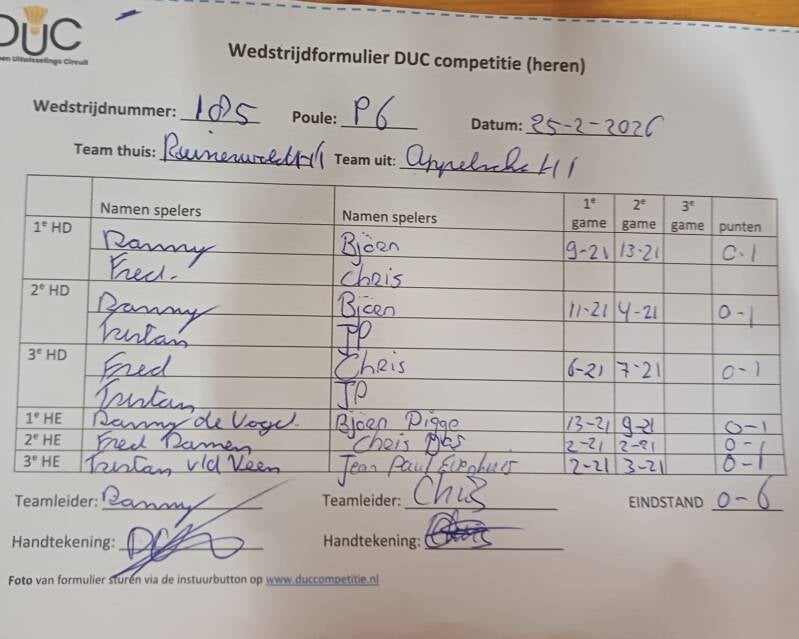 DUC
en Uitwisselings Circuit
Wedstrijdformulier DUC competitie (heren)
Wedstrijdnummer: 185 Poule: P6 Datum: 25-2-2026
Team thuis: Ruinerwold H1 Team uit: Appelscha H1
Namen spelers Namen spelers 1e game 2e game 3e game punten
1e HD Danny Björn 9-21 13-21 0-1
Fred. Chris
2e HD Danny Björn 11-21 4-21 0-1
Tristan JP
3e HD Fred Chris 6-21 7-21 0-1
Tristan JP
1e HE Danny de Vogel. Björn Pigge 13-21 9-21 0-1
2e HE Fred Damen Chris 2-21 2-21 0-1
3e HE Tristan v/d Veen Jean Paul 2-21 3-21 0-1
Teamleider: Danny Teamleider: Chris EINDSTAND 0-6
Handtekening: Handtekening:
Foto van formulier sturen via de instuurbutton op www.duccompetitie.nl